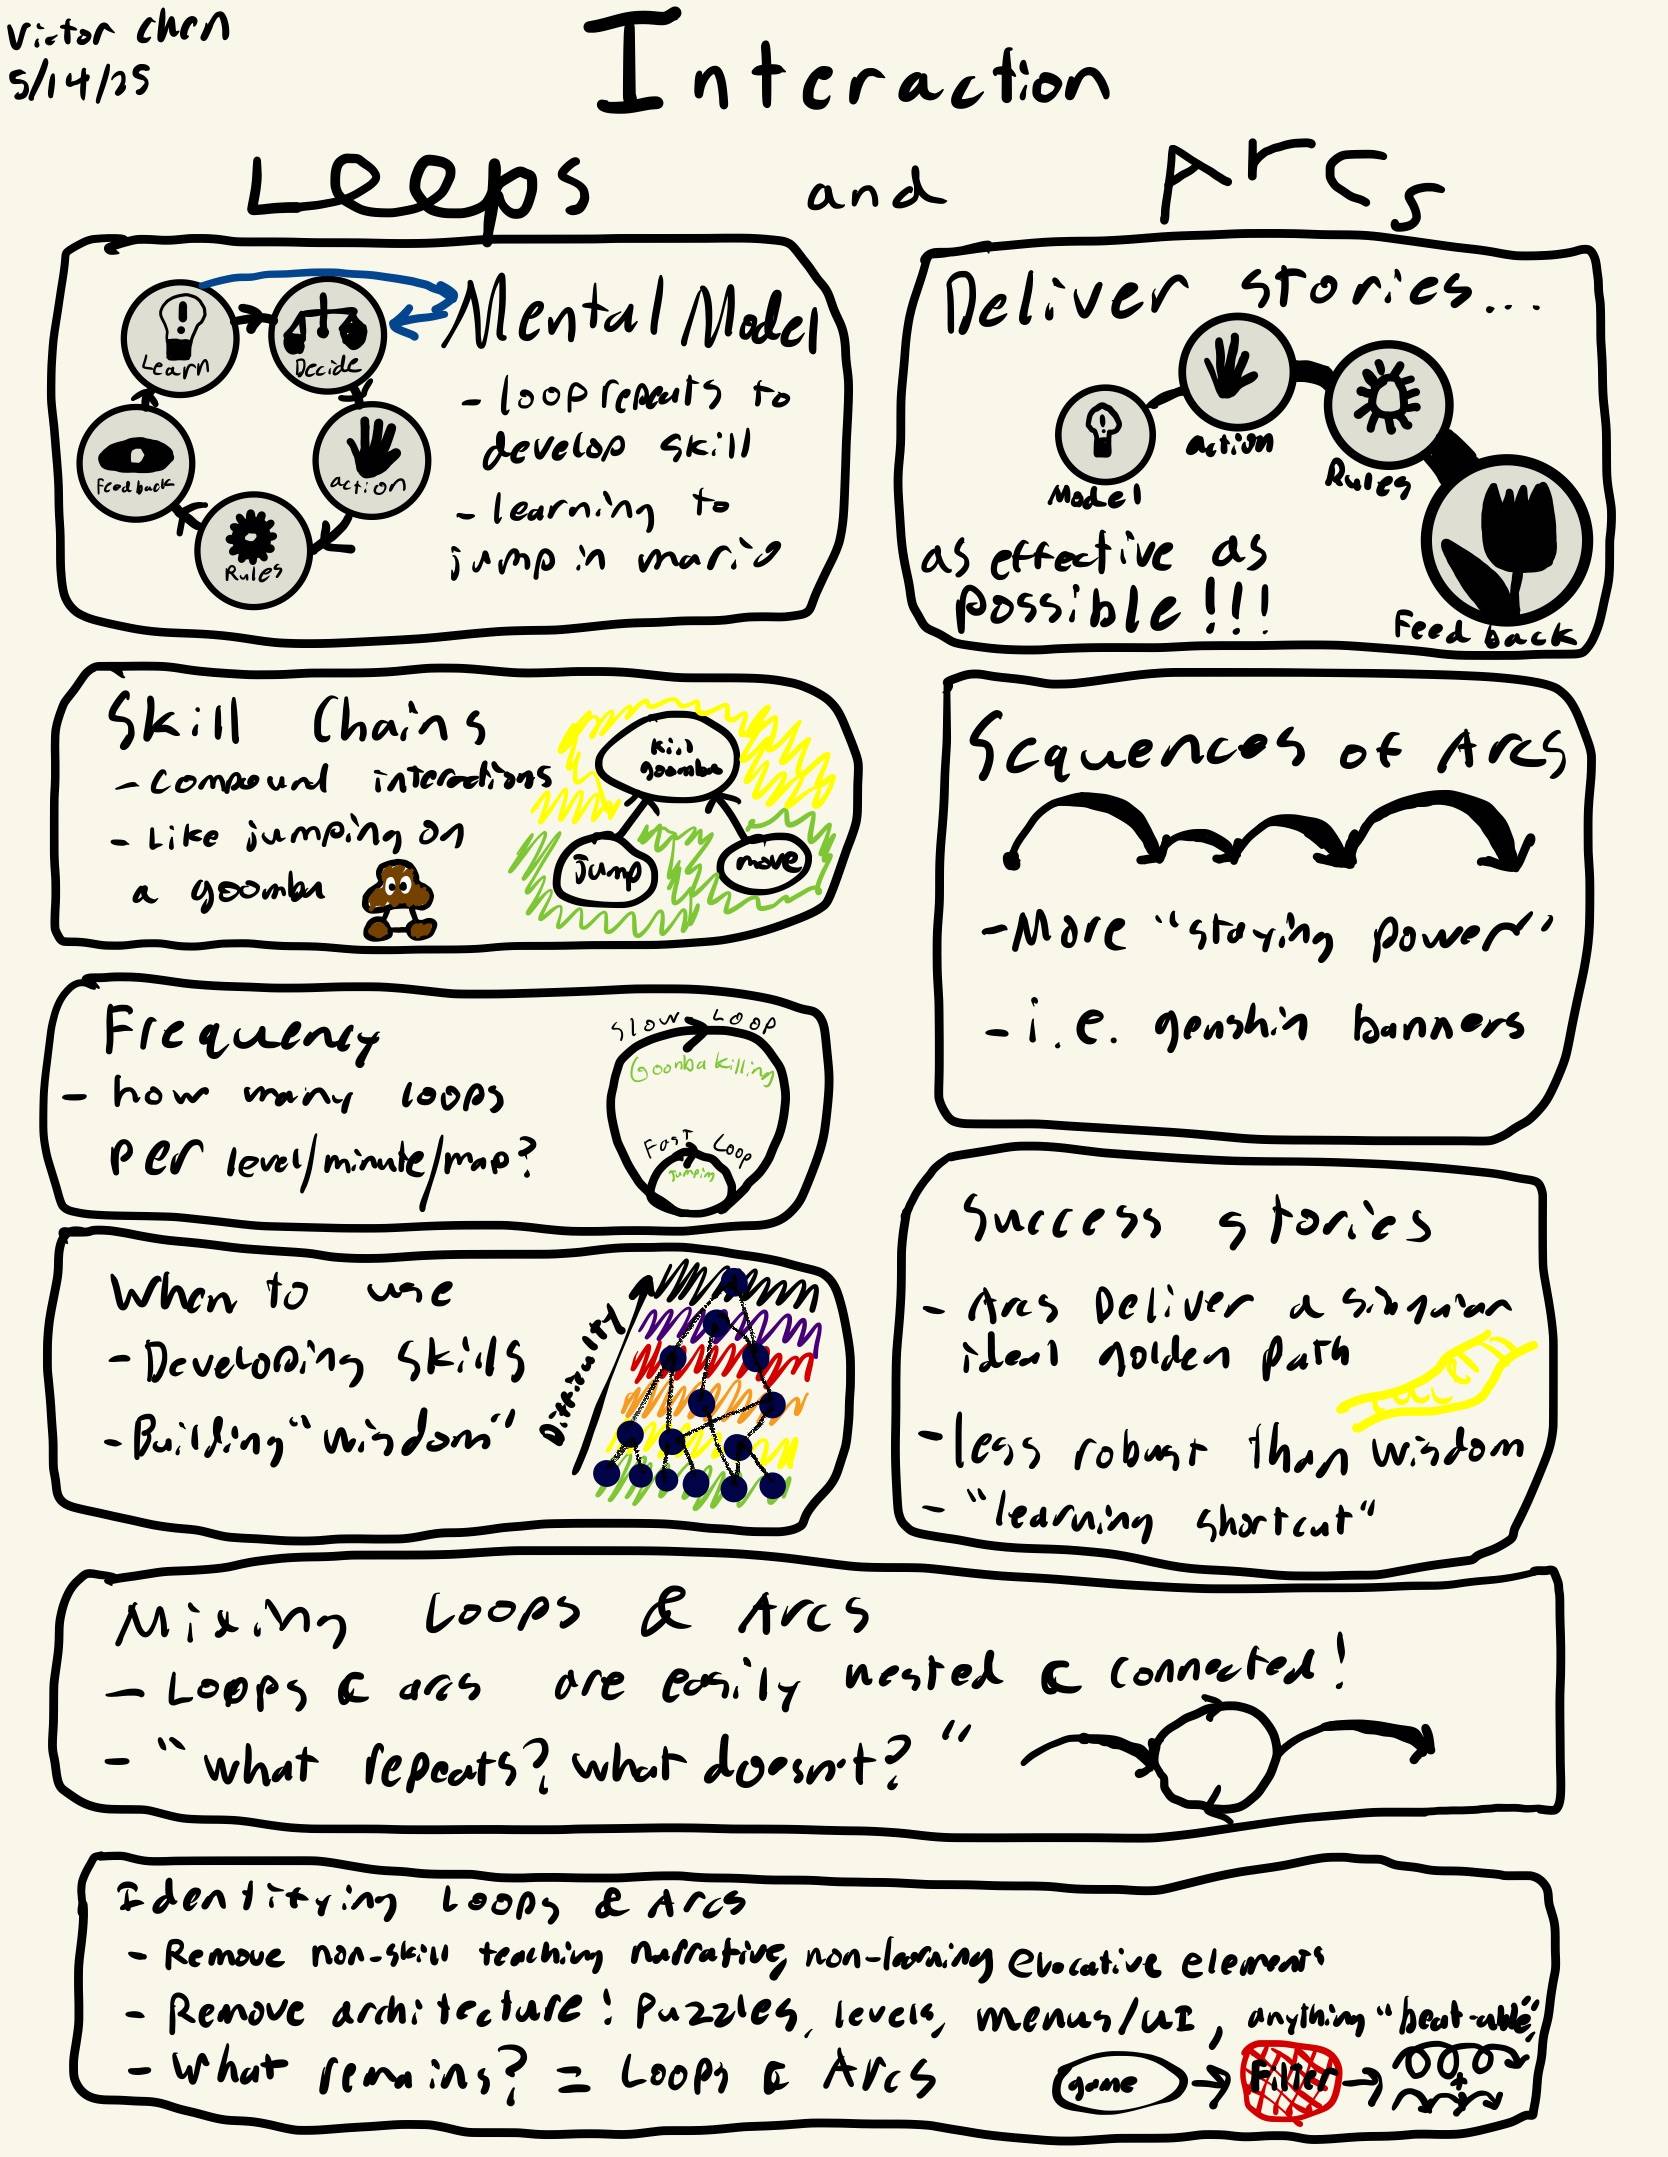 Victor Chen
5/14/25
Interaction
Loops and Arcs
Mental Model
- loop repeats to
develop skill
- learning to
jump in mario
Learn
Decide
action
Rules
Feedback
Deliver stories...
Model
action
Rules
Feedback
as effective as
possible!!!
Skill Chains
- compound interactions
- Like jumping on
a goomba
kill
goomba
jump
move
Sequences of Arcs
- More "staying power"
- i.e. genshin banners
Frequency
- how many loops
per level/minute/map?
Slow Loop
Goomba killing
Fast Loop
Jumping
When to use
- Developing skills
- Building "wisdom"
Difficulty
Success stories
- Arcs Deliver a singular
ideal golden path
- less robust than wisdom
- "learning shortcut"
Mixing Loops & Arcs
- Loops & arcs are easily nested & connected!
- "what repeats? what doesn't?"
Identifying Loops & Arcs
- Remove non-skill teaching narrative, non-learning evocative elements
- Remove architecture! Puzzles, levels, menus/UI, anything "beat-able"
- What remains? = Loops & Arcs
game
Filter
+